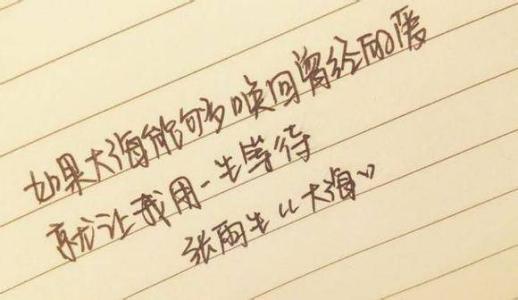 如果大海能够唤回曾经的爱
就让我用一生等待
张雨生“大海”